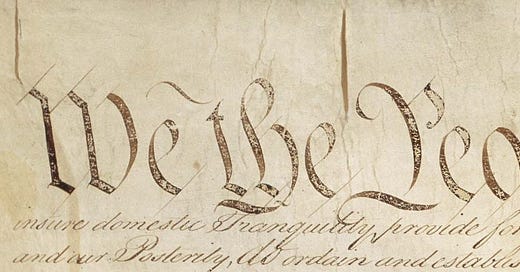 We the Peo
insure domestic Tranquility, provide for
and our Posterity, do ordain and establis